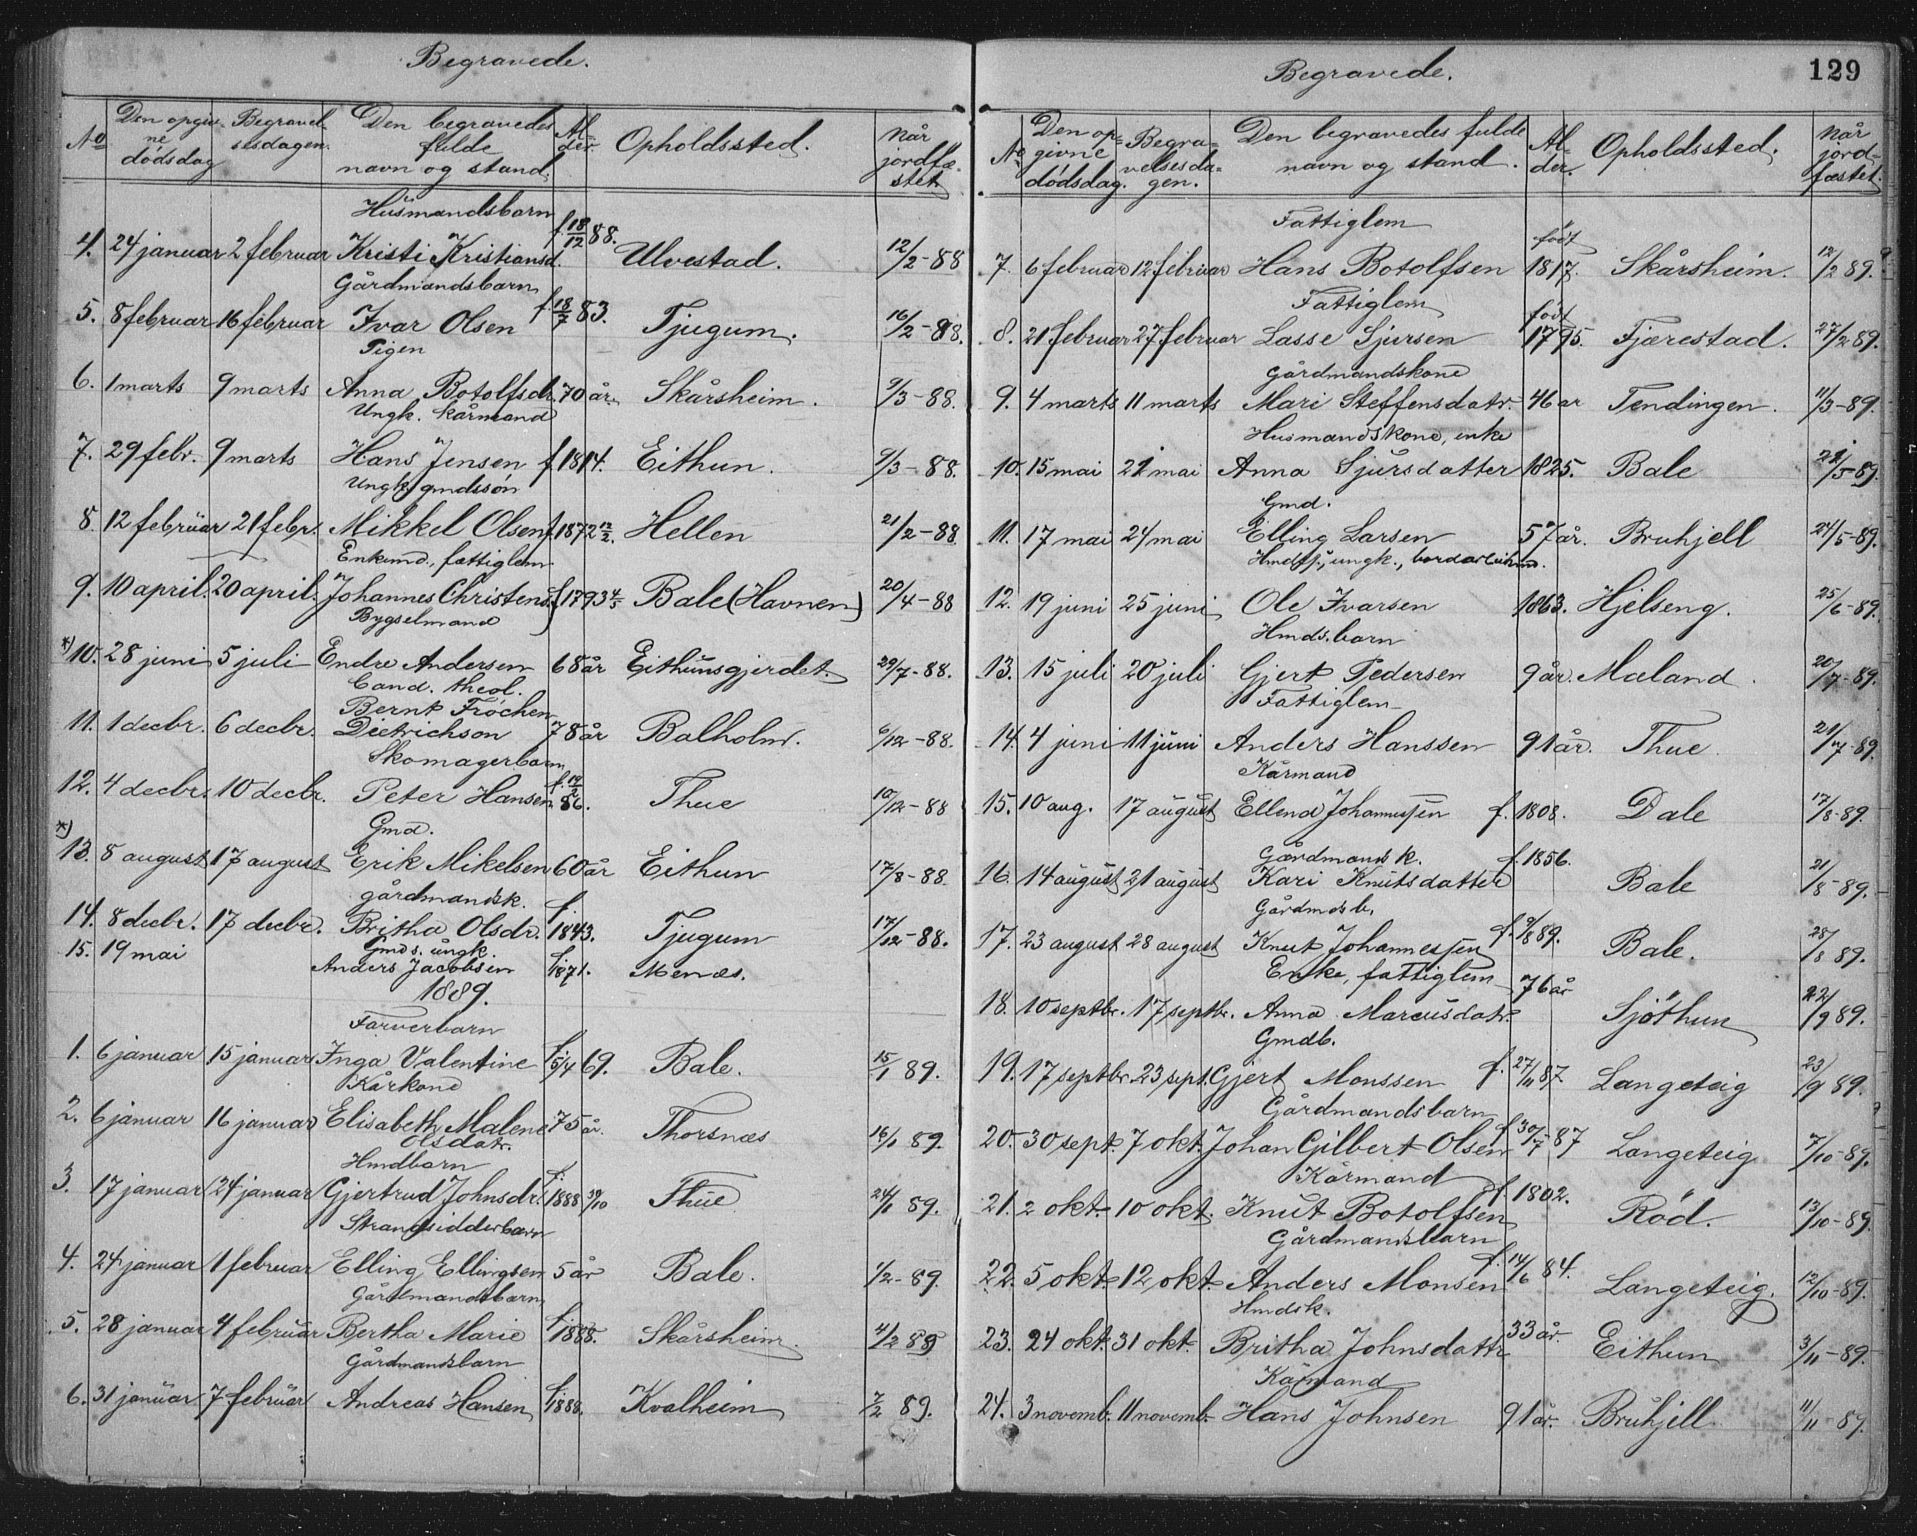 Begravede.
No Den opgivne dødsdag Begravelsesdagen. Den begravedes fulde navn og stand. Alder. Opholdssted. Når jordfæstet
Husmandsbarn
4. 24 januar 2 februar Kristi Kristiansd. f. 18/12 88. Ulvestad. 12/2-88
Gårdmandsbarn
5. 8 februar 16 februar Ivar Olsen f. 18/7 83. Tjugum. 16/2-88.
Pigen
6. 1 marts 9 marts Anna Botolfsdr. 70 år. Skårsheim. 9/3-88.
Ungk. kårmand
7. 29 febr. 9 marts Hans Jensen f. 1814. Eithun. 9/3-88.
Ungk. gmdssøn
8. 12 februar 21 febr. Mikkel Olsen f. 1872 12/2. Hellen 21/2-88.
Enkemd., fattiglem
9. 10 april. 20 april. Johannes Christens. f. 1793 4/5 Bale (Havnen) 20/4-88
Bygselmand
*) 10. 28 juni 5 juli Endre Andersen 68 år Eithunsgjerdet. 29/7-88.
Cand. theol.
Bernt Fröchen
11. 1 decbr. 6 decbr. Dietrichson 78 år Balholm. 6/12-88.
Skomagerbarn
12. 4 decbr. 10 decbr. Peter Hansen 86. Thue 10/12-88
Gmd.
*) 13. 8 august 17 august Erik Mikelsen 60 år Eithun 17/8-88.
gårdmandsk.
14. 8 decbr. 17 decbr. Britha Olsdr. f. 1843. Tjugum 17/12-88.
Gmds. ungk.
15. 19 mai Anders Jacobsen f. 1871. Menæs.
1889.
Farverbarn
1. 6 januar 15 januar Inga Valentine f. 5/4 69. Bale. 15/1 89.
Kårkone
2. 6 januar 16 januar Elisabeth Malene Olsdat. 75 år. Thorsnæs 16/1 89.
Hmdbarn
3. 17 januar 24 januar Gjertrud Johnsdr. f. 1888 30/10 Thue 24/1 89.
Strandsidderbarn
4. 24 januar 1 februar Elling Ellingsen 5 år Bale. 1/2-89.
Gårdmandsbarn
5. 28 januar 4 februar Bertha Marie f. 1888. Skårsheim. 4/2 89
Gårdmandsbarn
6. 31 januar 7 februar Andreas Hansen f. 1888. Kvalheim 7/2 89.
Begravede.
129
No Den opgivne dødsdag. Begravelsesdagen. Den begravedes fulde navn og stand. Alder. Opholdssted. Når jordfæstet.
Fattiglem
7. 6 februar 12 februar Hans Botolfsen født 1817. Skårsheim. 12/2 89.
Fattiglem
8. 21 februar 27 februar Lasse Sjursen født 1795. Fjærestad. 27/2 89.
Gårdmandskone
9. 4 marts 11 marts Mari Steffensdatr. 46 ar Tendingen. 11/3-89.
Husmandskone, enke
10. 15 mai 21 mai Anna Sjursdatter 1825. Bale 21/5-89.
Gmd.
11. 17 mai 24 mai Elling Larsen 57 år. Bruhjell 24/5-89.
Hmdss., ungk.,
12. 19 juni 25 juni Ole Ivarsen 1863. Hjelseng. 25/6-89.
Hmds. barn
13. 15 juli 20 juli Gjert Pedersen 9 år. Mæland. 20/7-89.
Fattiglem
14. 4 juni 11 juni Anders Hanssen 91 år. Thue 21/7-89.
Kårmand
15. 10 aug. 17 august Ellend Johannessen f. 1808. Dale 17/8-89.
Gårdmandsk.
16. 14 august 21 august Kari Knutsdatter f. 1856. Bale 21/8-89.
Gårdmdsb.
17. 23 august 28 august Knut Johannessen f. 9/8 89. Bale. 28/8 89.
Enke, fattiglem
18. 10 septbr. 17 septbr. Anna Marcusdatr. 76 år Sjöthun 22/9 89.
Gmdb.
19. 17 septbr. 23 sept. Gjert Monssen f. 27/11 87. Langeteig 23/9 89.
Gårdmandsbarn
20. 30 sept. 7 okt. Johan Gilbert Olsen f. 30/7-87 Langeteig 7/10-89.
Kårmand
21. 2 okt. 10 okt. Knut Botolfsen f. 1802. Röd. 13/10-89.
Gårdmandsbarn
22. 5 okt. 12 okt. Anders Monsen f. 14/6 84. Langeteig. 12/10-89.
Hmdsk.
23. 24 okt. 31 okt. Britha Johnsdattr 33 år. Eithun 3/11-89.
Kårmand
24. 3 novemb. 11 novemb. Hans Johnsen 91 år. Bruhjell. 11/11-89.